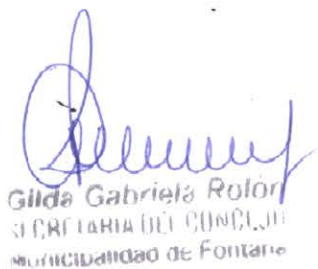 Gilda Gabriela Rolón
SECRETARIA DEL CONCEJO
Municipalidad de Fontana